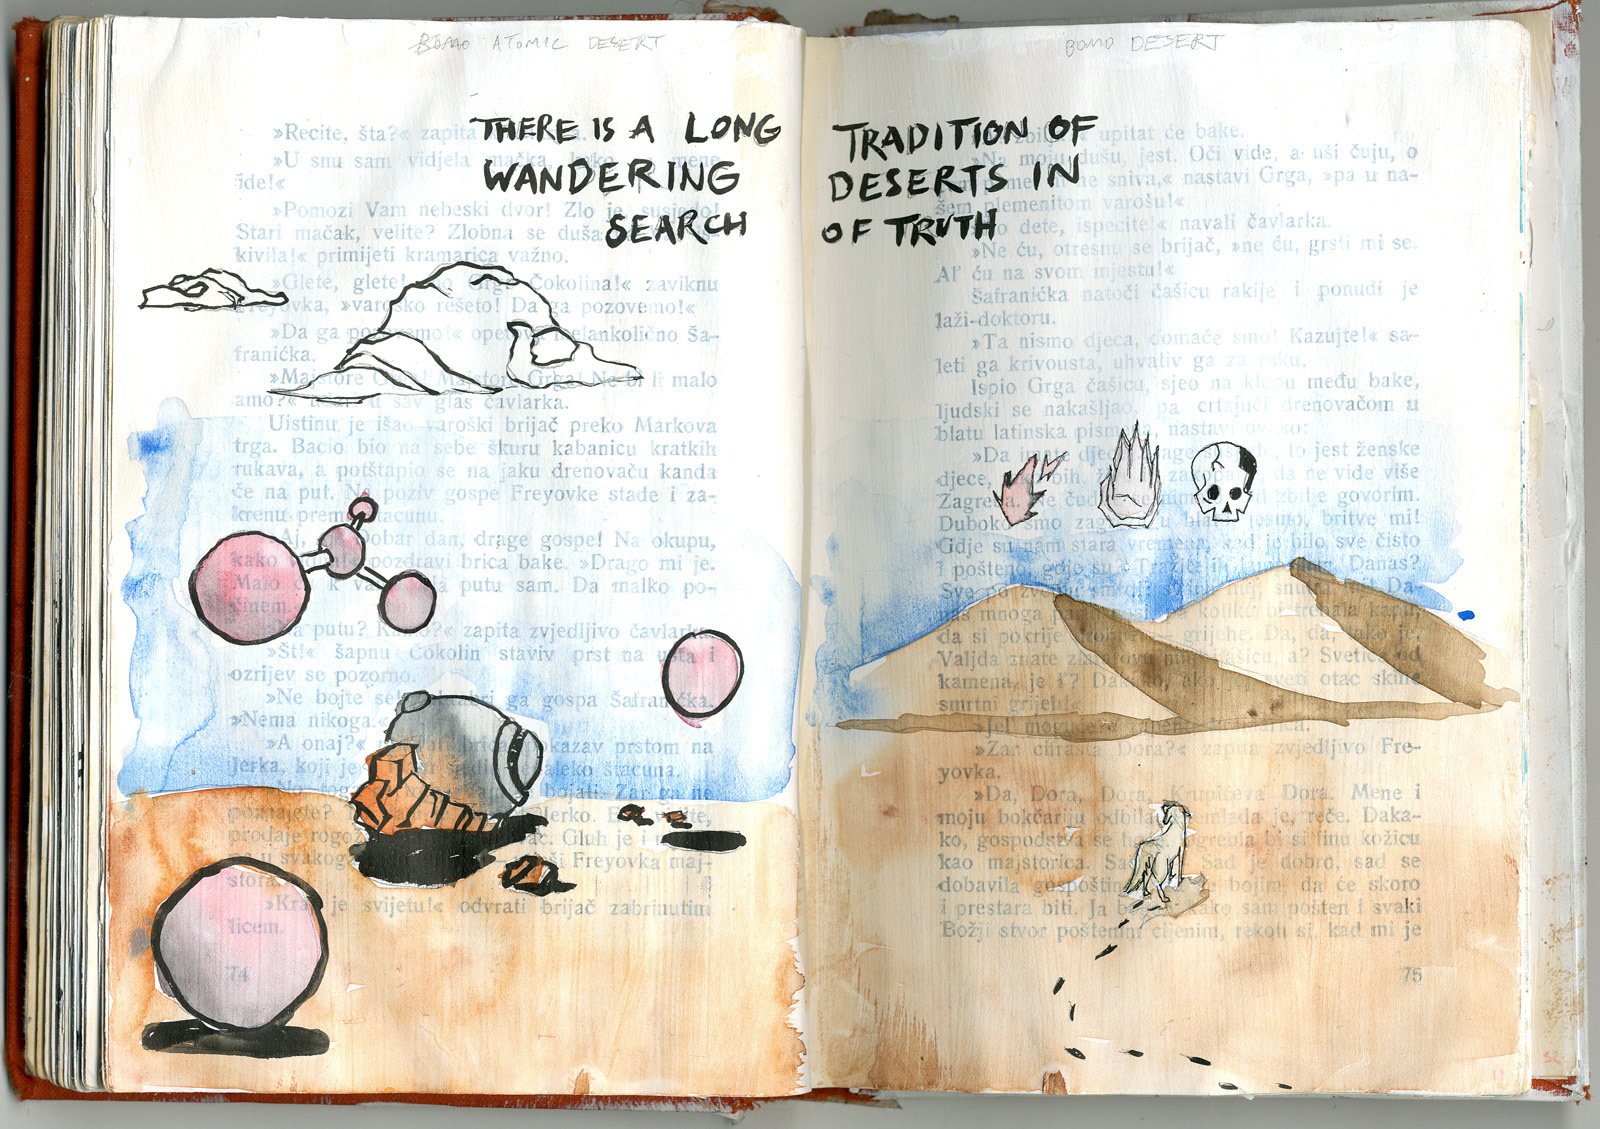 BOMO ATOMIC DESERT
BOMO DESERT
THERE IS A LONG TRADITION OF
WANDERING DESERTS IN
SEARCH OF TRUTH
»Recite, šta?« zapita
»U snu sam vidjela mačka, mene
ide!«
»Pomozi Vam nebeski dvor! Zlo je, susjedo!
Stari mačak, velite? Zlobna se duša
kivila!« primijeti kramarica važno.
»Glete, glete! Grga Čokolina!« zaviknu
Freyovka, »varoško rešeto! Da ga pozovemo!«
»Da ga pozovemo!« opetova melankolično Ša-
franićka.
»Majstore Grga! Majstore Grga! Ne bi li malo
amo?« u sav glas čavlarka.
Uistinu je išao varoški brijač preko Markova
trga. Bacio bio na sebe škuru kabanicu kratkih
rukava, a potštapio se na jaku drenovaču kanda
će na put. Na poziv gospe Freyovke stade i za-
krenu prema štacunu.
»Aj, Dobar dan, drage gospe! Na okupu,
kako pozdravi brica bake. »Drago mi je.
Malo putu sam. Da malko po-
činem.
putu? Kamo?« zapita zvjedljivo čavlarka.
»Št!« šapnu Čokolin staviv prst na usta i
ozrijev se pozorno.
»Ne bojte se ga gospa Šafranićka.
»Nema nikoga.«
»A onaj?« brica pokazav prstom na
Jerka, koji je daleko štacuna.
bojati. Zar ga ne
poznajete? Jerko.
prodaje rogož Gluh je i
svakoga Freyovka maj-
stora.
»Kraj je svijetu!« odvrati brijač zabrinutim
licem.
74
upitat će bake.
»Na moju dušu, jest. Oči vide, a uši čuju, o
ne sniva,« nastavi Grga, »pa u na-
šem plemenitom varošu!«
dete, ispecite!« navali čavlarka.
»Ne ću, otresnu se brijač, »ne ću, grsti mi se.
Al' ću na svom mjestu!«
Šafranićka natoči čašicu rakije i ponudi je
laži-doktoru.
»Ta nismo djeca, domaće smo! Kazujte!« sa-
leti ga krivousta, uhvativ ga za ruku.
Ispio Grga čašicu, sjeo na klupu među bake,
ljudski se nakašljao, pa crtajući drenovačom u
blatu latinska pismena, nastavi ovako:
»Da to jest ženske
djece, da ne vide više
Zagreba. zbilje govorim.
Duboko smo britve mi!
Gdje su nam stara vremena, kad je bilo sve čisto
i pošteno, gdje su? Danas?
Sve po
mnoga koliku bi trebala kapu,
da si pokrije grijehe. Da, da, tako je.
Valjda znate zlatarovu a? Svetice od
kamena, je l'? sveti otac skine
smrtni grijeh!«
»Jel' moguće«
»Zar cifrasta Dora?« zapita zvjedljivo Fre-
yovka.
»Da, Dora, Dora, Krupićeva Dora. Mene i
moju bokčariju odbila, premlada je, reče. Daka-
ko, gospodstva se bi si finu kožicu
kao majstorica. Sad je dobro, sad se
dobavila gospoštine, bojim, da će skoro
i prestara biti. Ja kako sam pošten i svaki
Božji stvor poštenim cijenim, rekoh si, kad mi je
75